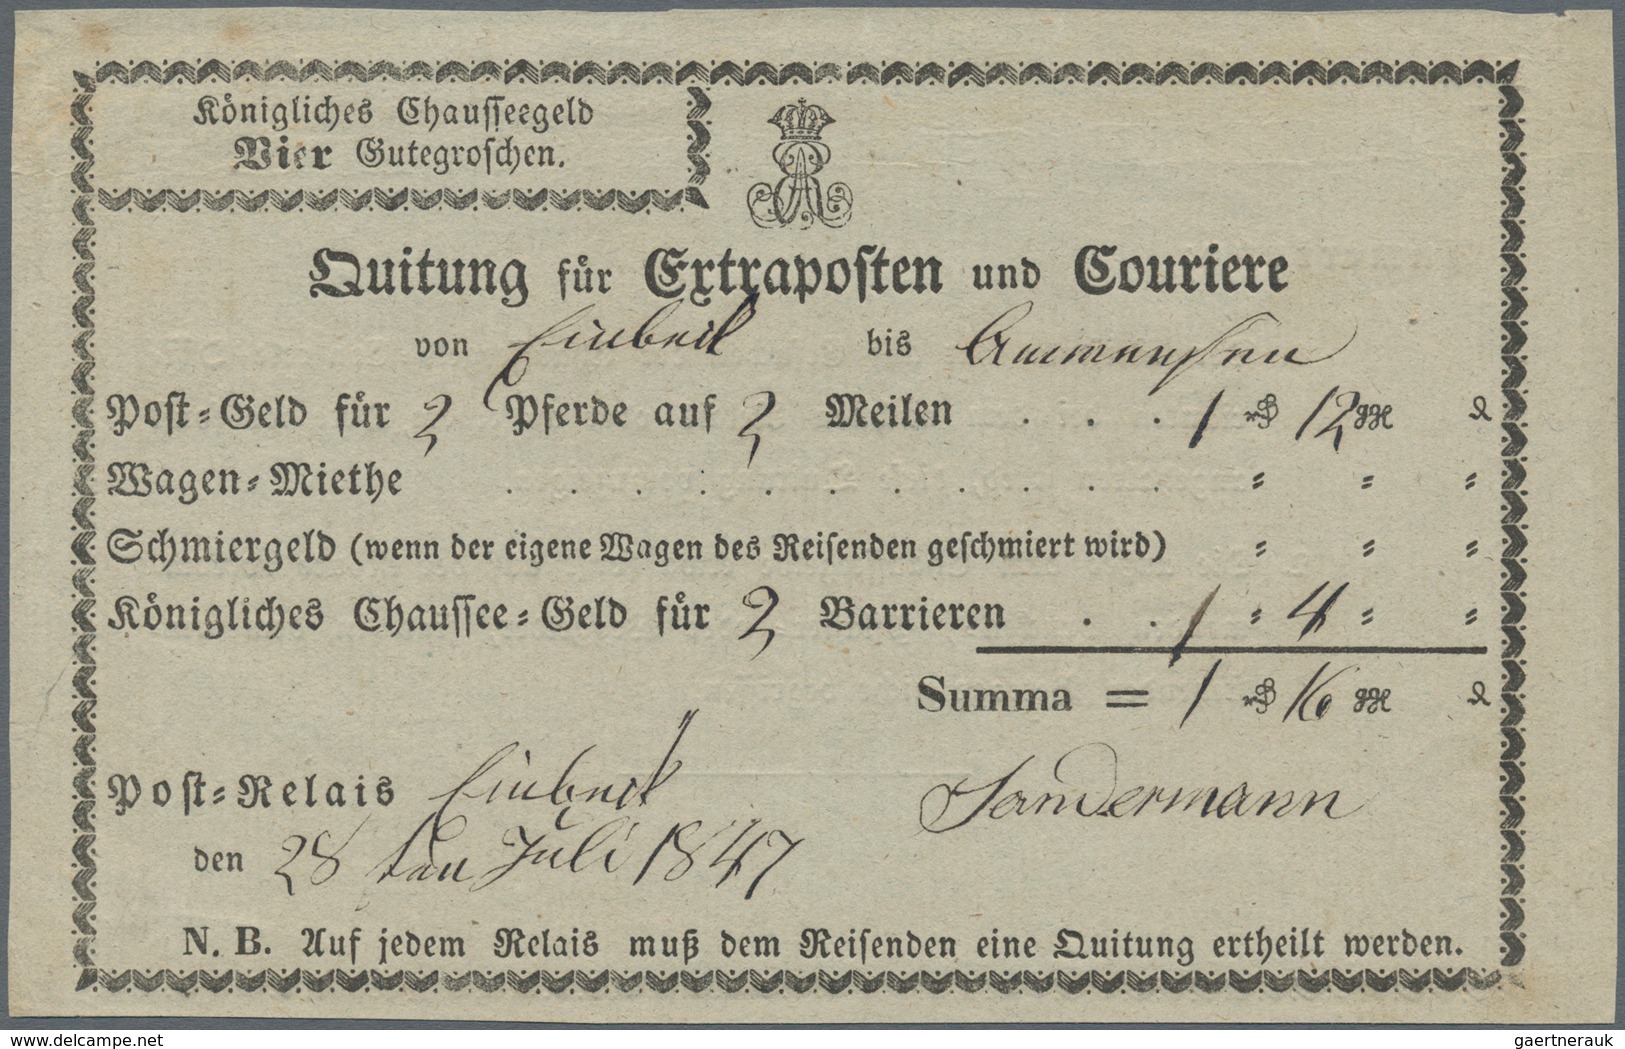 Königliches Chausseegeld
Vier Gutegroschen.
Quitung für Extraposten und Couriere
von Einbeck bis Ammensen
Post-Geld für 2 Pferde auf 2 Meilen . . . 1 12
Wagen-Miethe
Schmiergeld (wenn der eigene Wagen des Reisenden geschmiert wird)
Königliches Chaussee-Geld für 2 Barrieren . . 4
Summa = 1 16
Post-Relais Einbeck Sandermann
den 28 ten Juli 1847
N. B. Auf jedem Relais muß dem Reisenden eine Quitung ertheilt werden.
www.delcampe.net
gaertnerauk